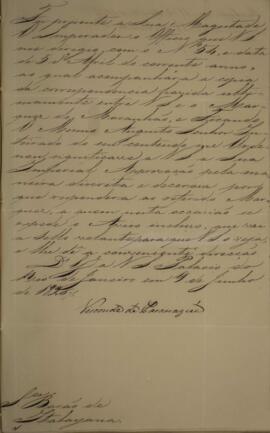 Fiz presente a Sua Magestade
O Imperador o Officio que V. S.
me dirigio com o Nº 54, e data
de 5 d'Abril do corrente anno,
ao qual acompanhára a copia
da correspondencia havida ultimamente entre V. S. e o Marquez
do Maranhão, e Ficando
O Mesmo Augusto Senhor Inteirado
do seu contendo que Ordenou
significasse a V. S. a Sua
Imperial Approvação pela maneira
discreta e decorosa por
que respondera ao referido Marquez,
a quem nesta occasião se
expede o Aviso incluso, que vae
a sello volante para que V. S. o veja,
e lhe dê a conveniente direcção
D. G. a V. S. Palacio do
Rio de Janeiro em 9 de Junho
de 1826.
Visconde de Inhambupe
Snr.
Barão de
Itabayana.